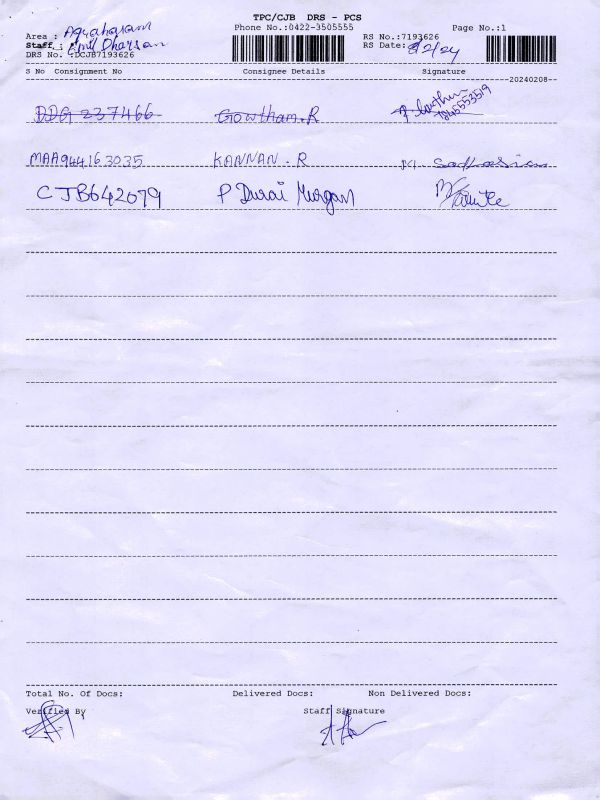 TPC/CJB DRS - PCS
Phone No.:0422-3505555
Page No.:1
Area : Agraharam
RS No.:7193626
Staff :
RS Date: 8/2/24
DRS No. :DCJB7193626
S No Consignment No Consignee Details Signature
20240208
DDG 237466 Gowtham.R
MAA944163035 KANNAN.R
CJB642079 P Durai Murgan
Total No. Of Docs: Delivered Docs: Non Delivered Docs:
Verified By Staff Signature